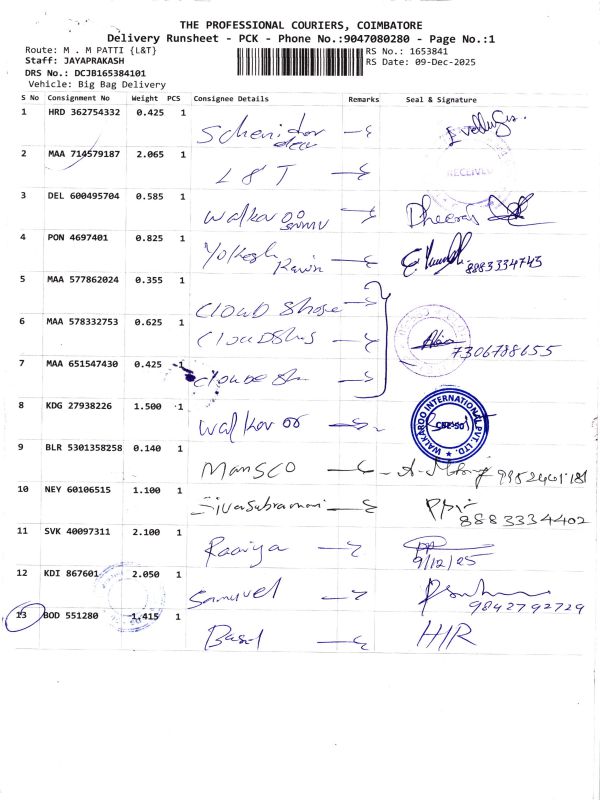 THE PROFESSIONAL COURIERS, COIMBATORE
Delivery Runsheet - PCK - Phone No.:9047080280 - Page No.:1
Route: M . M PATTI {L&T}
RS No.: 1653841
Staff: JAYAPRAKASH
RS Date: 09-Dec-2025
DRS No.: DCJB165384101
Vehicle: Big Bag Delivery
S No Consignment No Weight PCS Consignee Details Remarks Seal & Signature
1 HRD 362754332 0.425 1
2 MAA 714579187 2.065 1 L & T RECEIVED
3 DEL 600495704 0.585 1 Walkaroo Dheeraj
4 PON 4697401 0.825 1 Yokesh 8883334743
5 MAA 577862024 0.355 1 CLOUD Shose
6 MAA 578332753 0.625 1 7306788655
7 MAA 651547430 0.425 1
8 KDG 27938226 1.500 1 Walkaroo WALKAROO INTERNATIONAL PVT. LTD.
9 BLR 5301358258 0.140 1 MANSCO 9952401181
10 NEY 60106515 1.100 1 Sivasubramani 8883334402
11 SVK 40097311 2.100 1 9/12/25
12 KDI 867601 2.050 1 Samuvel 9842792729
13 BOD 551280 1.415 1 HIR